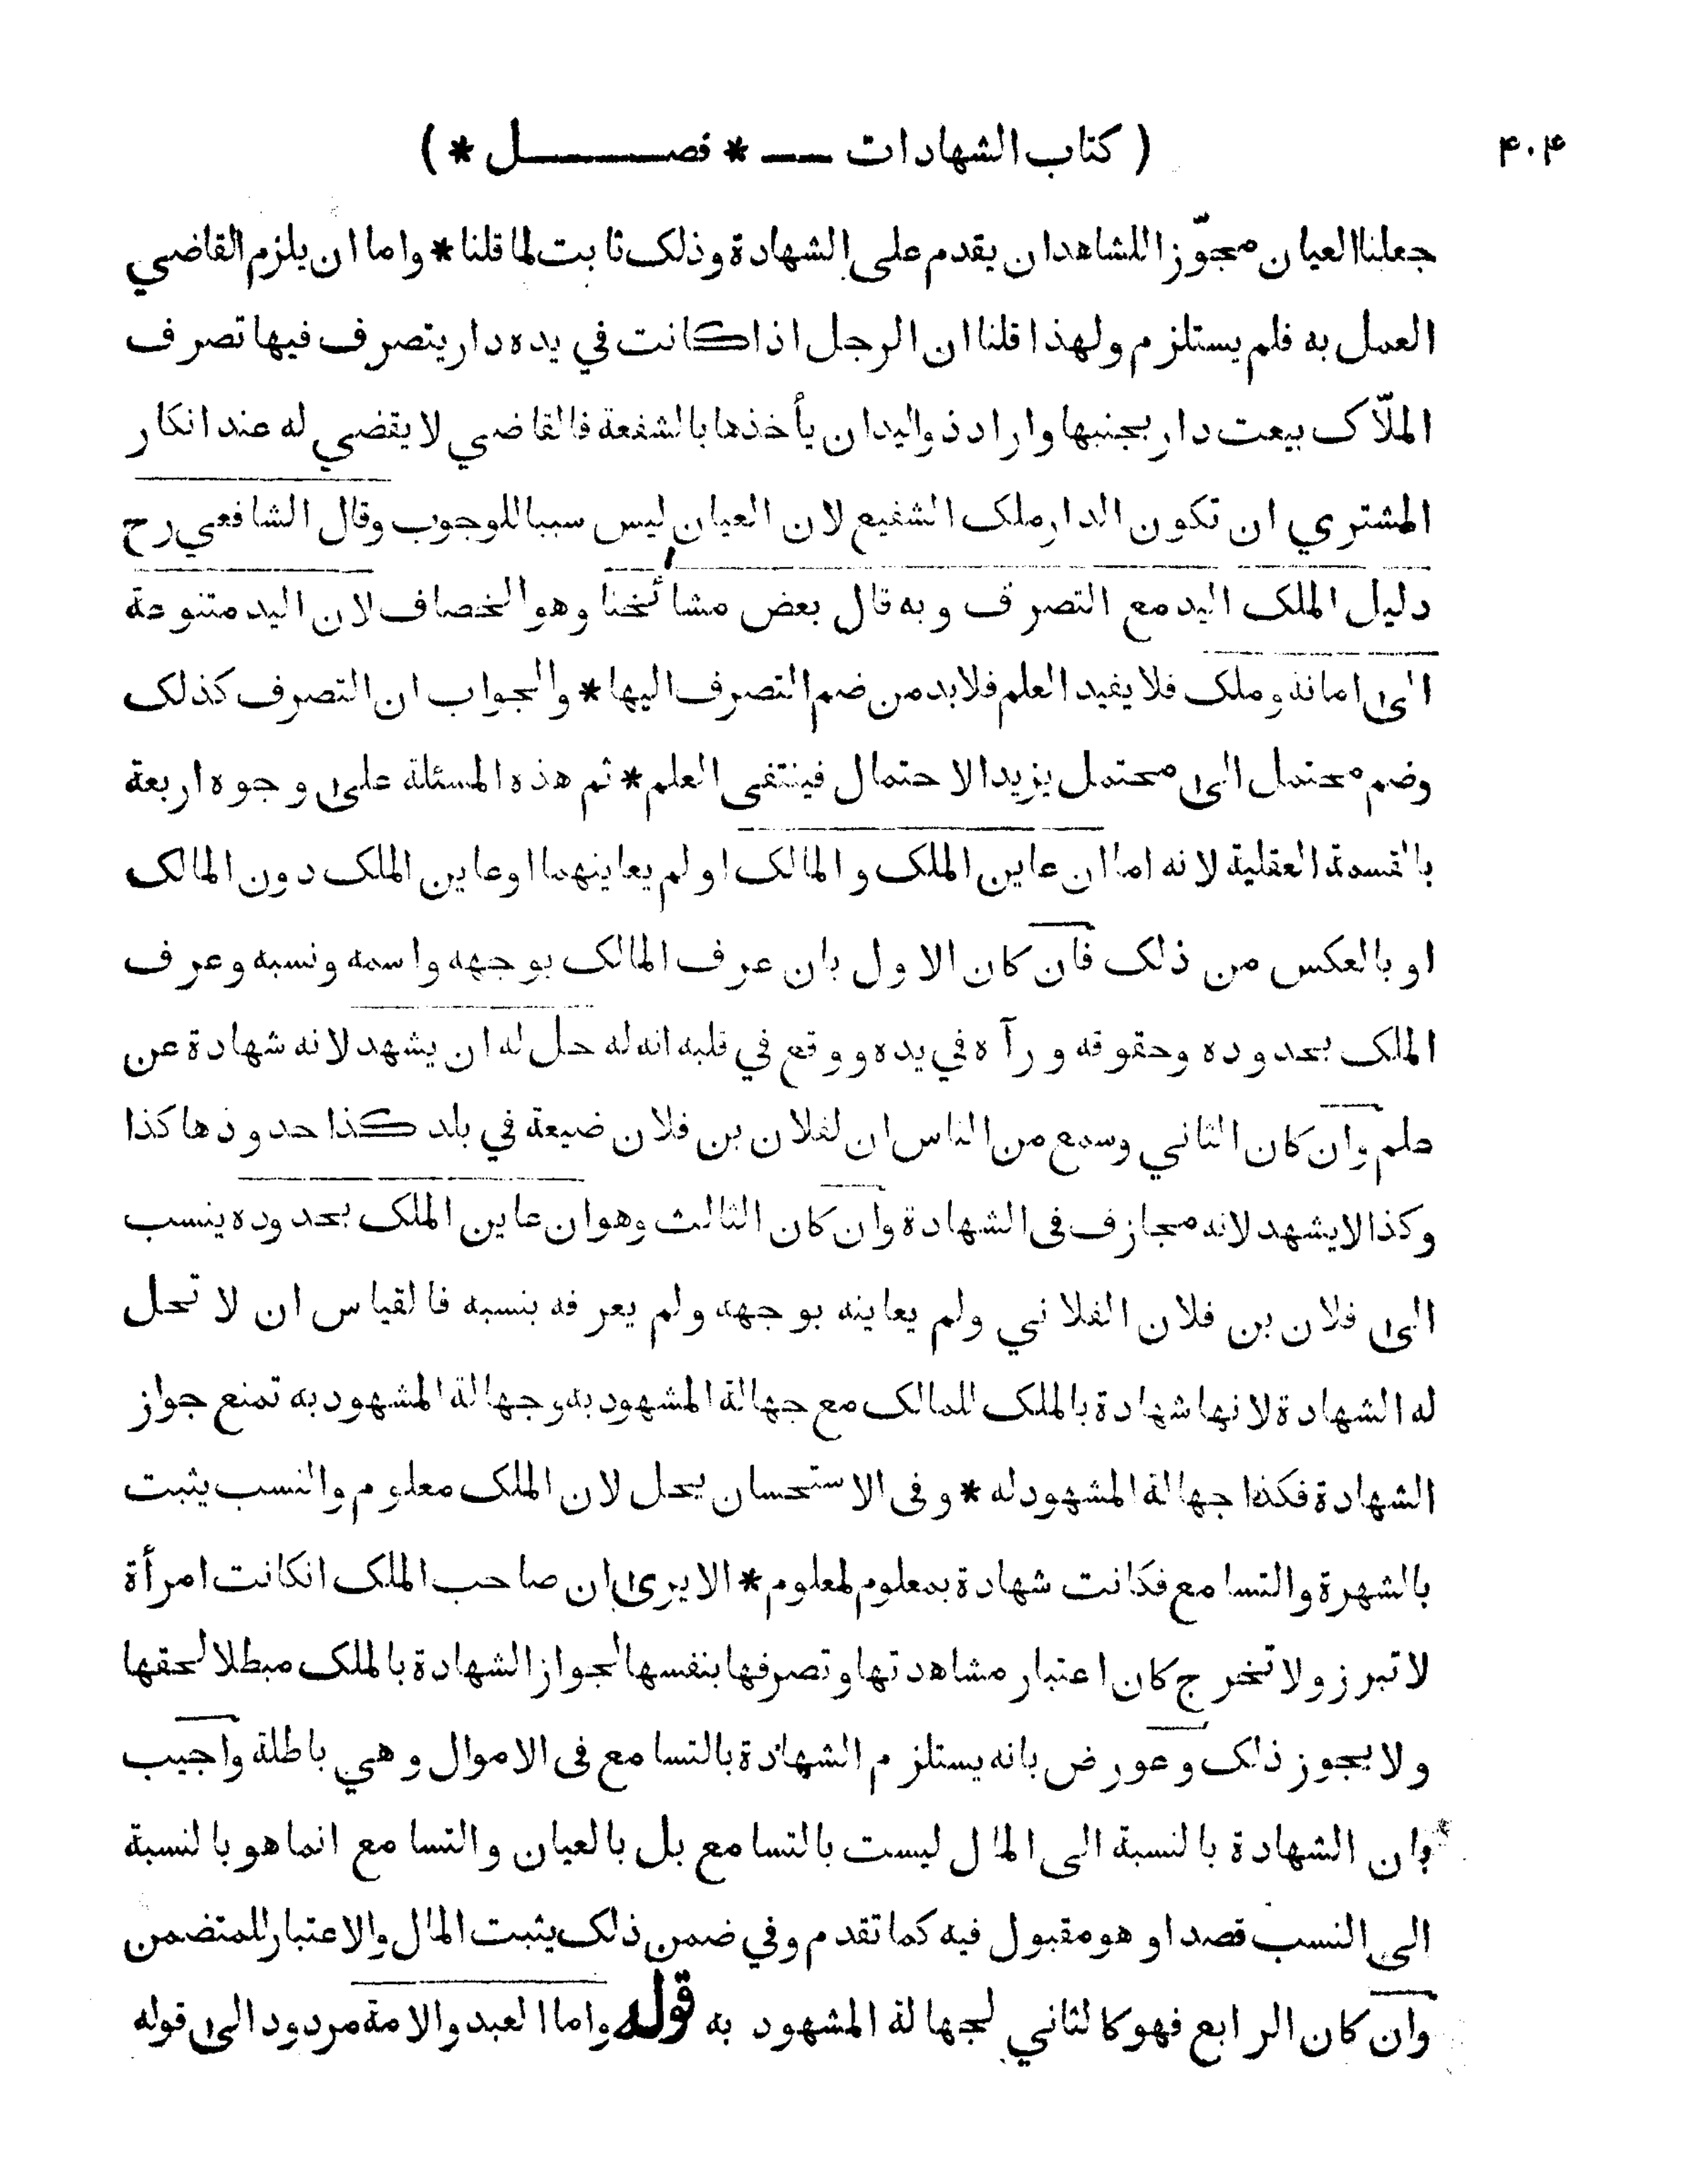 ( كتاب الشهادات — * فصــــــل * ) ۴۰۴
جعلنا العيان مجوّزا للشاهد ان يقدم على الشهادة وذلك ثابت لما قلنا * واما ان يلزم القاضي
العمل به فلم يستلزم ولهذا قلنا ان الرجل اذا كانت في يده دار يتصرف فيها تصرف
الملّاك بيعت دار بجنبها واراد ذو اليد ان يأخذها بالشفعة فالقاضي لا يقضي له عند انكار
المشتري ان تكون الدار ملك الشفيع لان العيان ليس سببا للوجوب وقال الشافعي رح
دليل الملك اليد مع التصرف وبه قال بعض مشائخنا وهو الخصاف لان اليد متنوعة
الى امانة وملك فلا يفيد العلم فلا بد من ضم التصرف اليها * والجواب ان التصرف كذلك
وضم محتمل الى محتمل يزيد الاحتمال فينتفى العلم * ثم هذه المسئلة على وجوه اربعة
بالقسمة العقلية لانه اما ان عاين الملك والمالك او لم يعاينهما او عاين الملك دون المالك
او بالعكس من ذلك فان كان الاول بان عرف المالك بوجهه واسمه ونسبه وعرف
الملك بحدوده وحقوقه ورآه في يده ووقع في قلبه انه له حل له ان يشهد لانه شهادة عن
علم وان كان الثاني وسمع من الناس ان لفلان بن فلان ضيعة في بلد كذا حدودها كذا
وكذا لا يشهد لانه مجازف فى الشهادة وان كان الثالث وهو ان عاين الملك بحدوده ينسب
الى فلان بن فلان الفلاني ولم يعاينه بوجهه ولم يعرفه بنسبه فالقياس ان لا تحل
له الشهادة لانها شهادة بالملك للمالك مع جهالة المشهود به وجهالة المشهود به تمنع جواز
الشهادة فكذا جهالة المشهود له * وفى الاستحسان يحل لان الملك معلوم والنسب يثبت
بالشهرة والتسامع فكانت شهادة بمعلوم لمعلوم * الا يرى ان صاحب الملك انكانت امرأة
لا تبرز ولا تخرج كان اعتبار مشاهدتها وتصرفها بنفسها لجواز الشهادة بالملك مبطلا لحقها
ولا يجوز ذلك وعورض بانه يستلزم الشهادة بالتسامع فى الاموال وهي باطلة واجيب
بان الشهادة بالنسبة الى المال ليست بالتسامع بل بالعيان والتسامع انما هو بالنسبة
الى النسب قصدا وهو مقبول فيه كما تقدم وفي ضمن ذلك يثبت المال والاعتبار للمتضمن
وان كان الرابع فهو كالثاني لجهالة المشهود به قوله واما العبد والامة مردود الى قوله